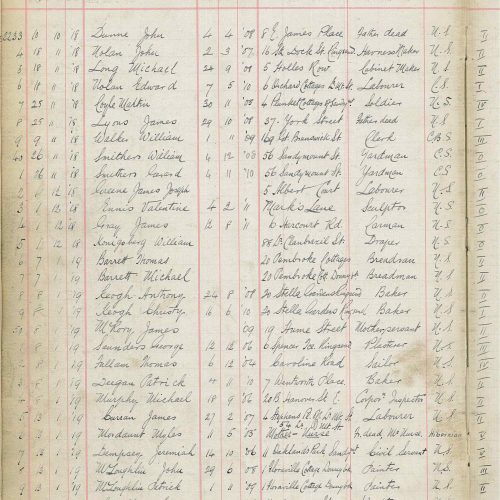 2233 10 10 '18 Dunne John 4 4 '08 8 E. James Place Father dead N.S.
4 18 11 '18 Nolan John 2 3 '07 16 Sth Lock St. Ringsend Harness Maker N.S.
5 18 11 '18 Long Michael 24 9 '08 5 Holles Row Cabinet Maker N.S.
6 18 11 '18 Nolan Edward 7 5 '10 6 Orchard Cottages Labourer C.S.
7 25 11 '18 Coyle Martin 30 11 '08 4 Plunket Cottages Soldier N.S.
8 25 11 '18 Lyons James 29 10 '08 37 York Street Father dead N.S.
9 9 11 '18 Walker William 1 11 '09 169 Gt. Brunswick St. Clerk C.B.S
40 26 11 '18 Smithers William 4 12 '08 56 Sandymount St. Yardman C.S.
1 26 11 '18 Smithers Gerard 4 11 '10 56 Sandymount St. Yardman C.S.
2 12 '18 Greene James Joseph 5 Albert Court Labourer N.S
3 1 12 '18 Ennis Valentine 4 2 '11 Mark's Lane Sculptor N.S.
4 1 12 '18 Gray James 12 8 '11 6 Harcourt Rd. Carman N.S.
5 1 12 '18 Konigsberg William 88 Lr. Clanbrazil St. Draper N.S.
6 7 1 19 Barrett Thomas 20 Pembroke Cottages Breadman N.S.
7 7 1 19 Barrett Michael 20 Pembroke Cotts Donny'k Breadman N.S.
8 8 1 19 Keogh Anthony 24 8 '08 20 Stella Gardens Ringsend Baker N.S.
9 8 1 19 Keogh Christy 16 6 '04 20 Stella Gardens Ringsend Baker N.S.
50 8 1 19 McEvoy James 09 19 Hume Street Mother servant N.S.
1 1 19 Saunders George 12 12 '06 6 Spencer Tce. Ringsend Plasterer N.S.
2 1 19 Fallan Thomas 6 12 '04 Caroline Road Sailor N.S.
3 13 1 19 Deegan Patrick 4 11 '10 7 Wentworth Place Baker N.S.
4 13 1 19 Murphy Michael 18 9 '06 20 B. Hanover St E. Corpon. Inspector N.S.
5 13 1 19 Curean James 27 2 '07 4 Stephens Pl. Labourer N.S.
6 13 1 19 Mordaunt Myles 1 5 '05 F. dead, Mo. Nurse Hibernian
7 13 1 19 Dempsey Jeremiah 14 10 '06 11 Oaklands Park Civil Servant N.S.
8 13 1 19 McLoughlin John 29 6 '08 1 Cottage Painter N.S.
9 13 1 19 McLoughlin Patrick 1 11 '09 1 Cottage Painter N.S.